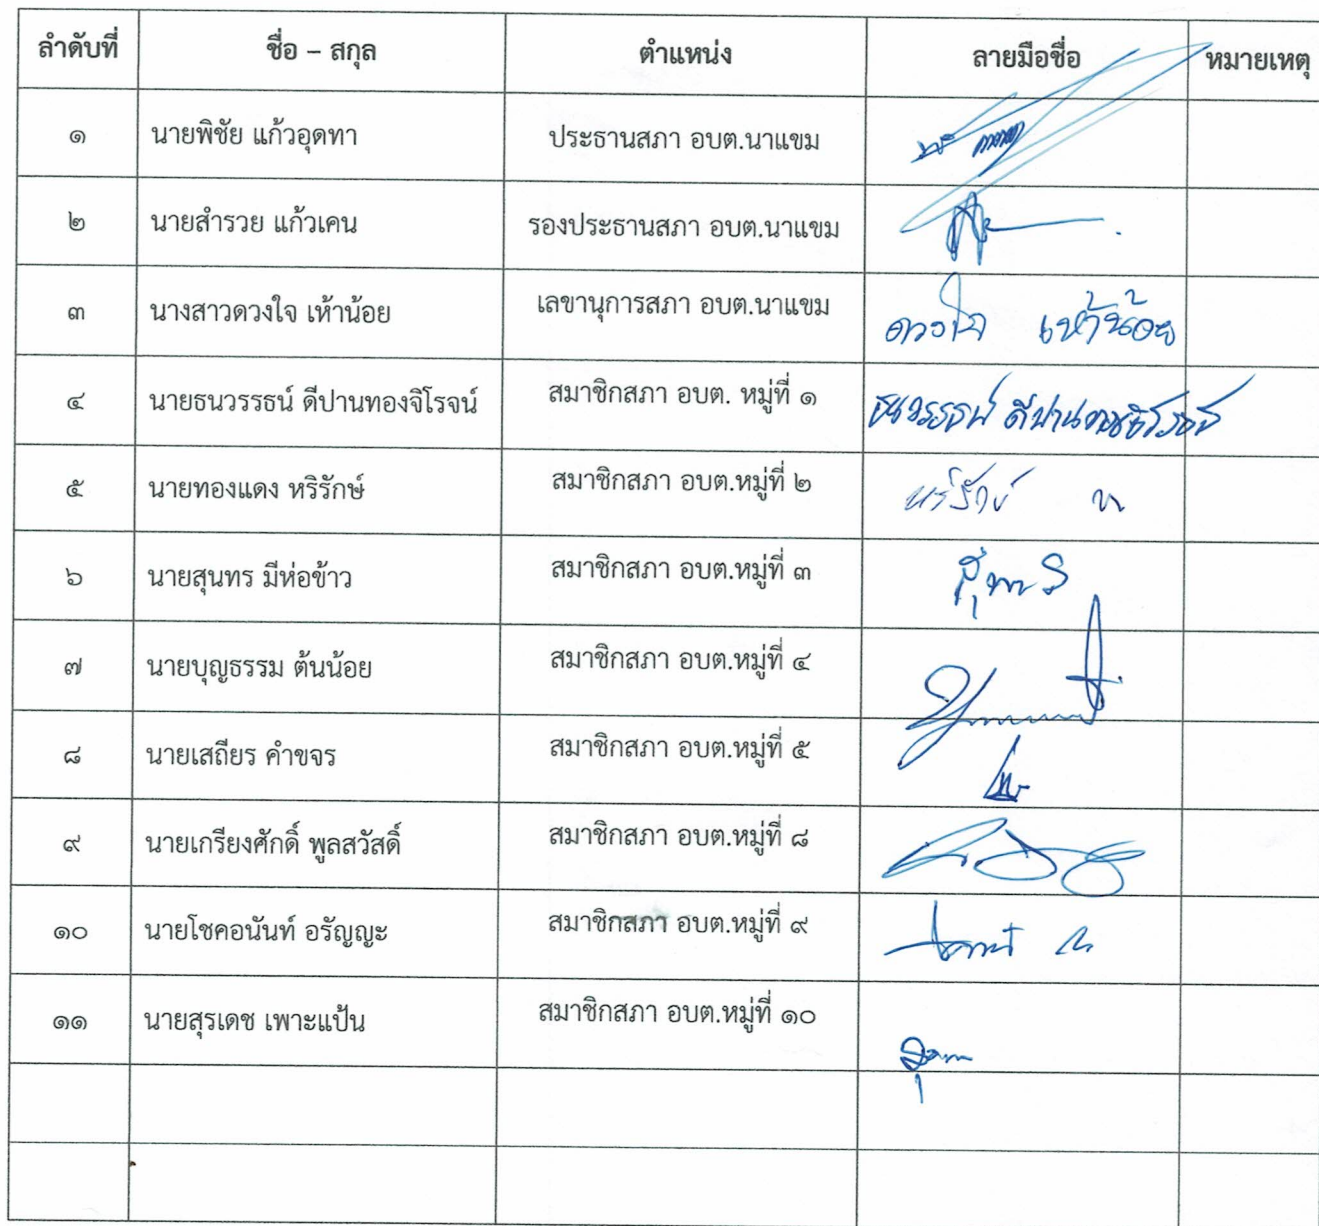 ลำดับที่ ชื่อ – สกุล ตำแหน่ง ลายมือชื่อ หมายเหตุ
๑ นายพิชัย แก้วอุดทา ประธานสภา อบต.นาแขม
๒ นายสำรวย แก้วเคน รองประธานสภา อบต.นาแขม
๓ นางสาวดวงใจ เห้าน้อย เลขานุการสภา อบต.นาแขม ดวงใจ เห้าน้อย
๔ นายธนวรรธน์ ดีปานทองจิโรจน์ สมาชิกสภา อบต. หมู่ที่ ๑ ธนวรรธน์ ดีปานทองจิโรจน์
๕ นายทองแดง หริรักษ์ สมาชิกสภา อบต.หมู่ที่ ๒
๖ นายสุนทร มีห่อข้าว สมาชิกสภา อบต.หมู่ที่ ๓
๗ นายบุญธรรม ต้นน้อย สมาชิกสภา อบต.หมู่ที่ ๔
๘ นายเสถียร คำขจร สมาชิกสภา อบต.หมู่ที่ ๕
๙ นายเกรียงศักดิ์ พูลสวัสดิ์ สมาชิกสภา อบต.หมู่ที่ ๘
๑๐ นายโชคอนันท์ อรัญญะ สมาชิกสภา อบต.หมู่ที่ ๙
๑๑ นายสุรเดช เพาะแป้น สมาชิกสภา อบต.หมู่ที่ ๑๐